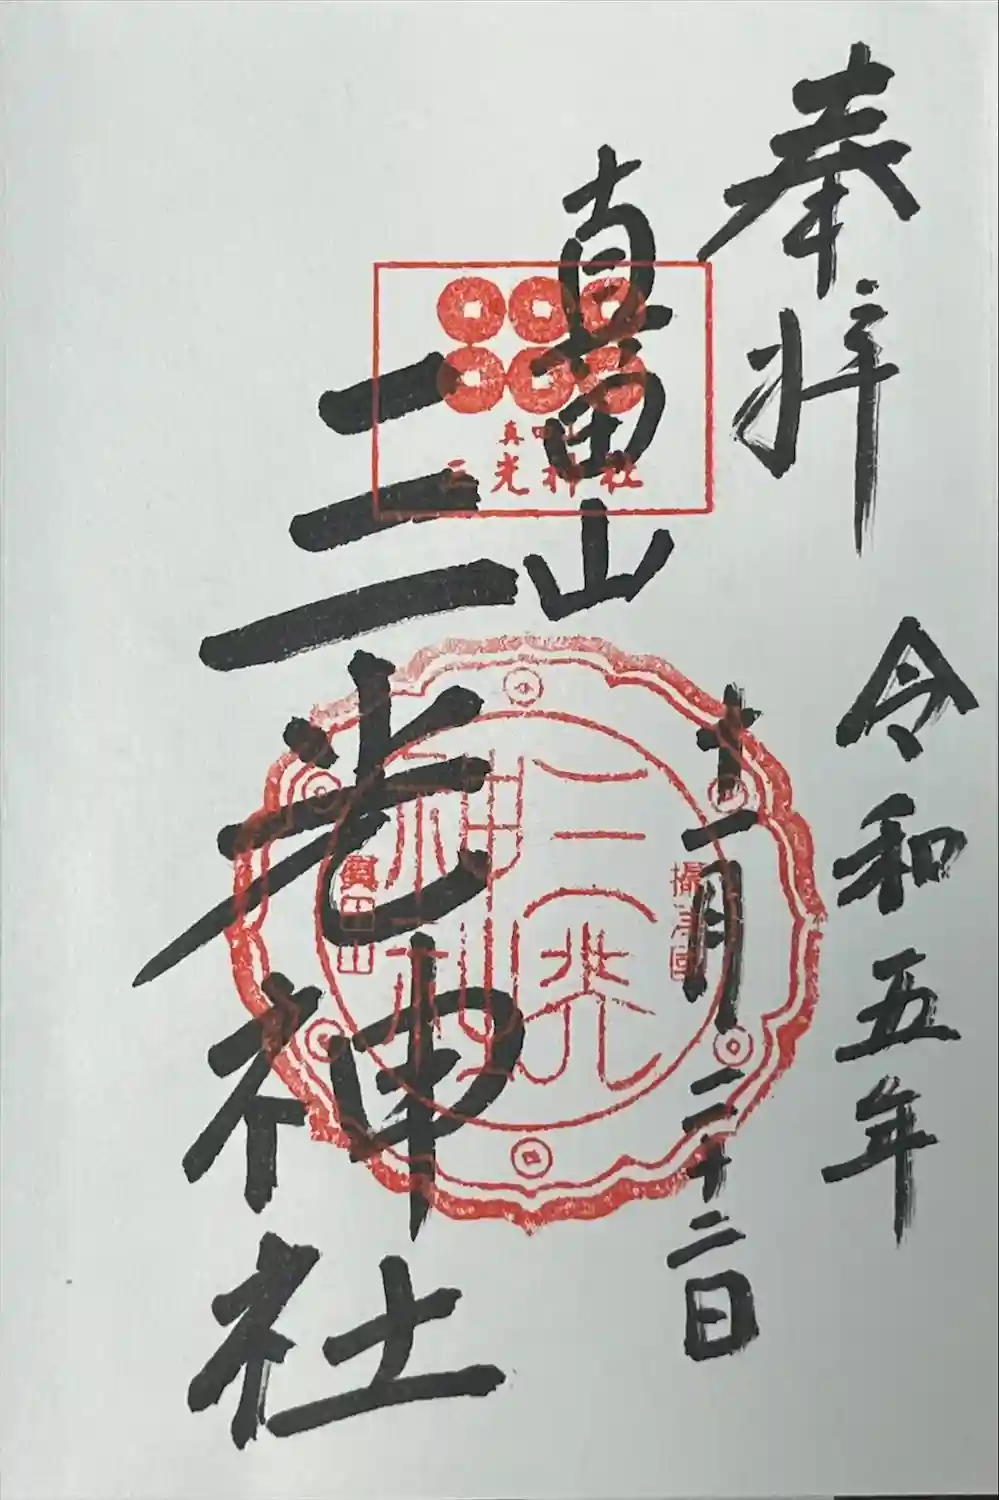 奉拝
令和五年
十一月二十二日
真田山
三光神社
真田山
三光神社
三光
神社
眞田山